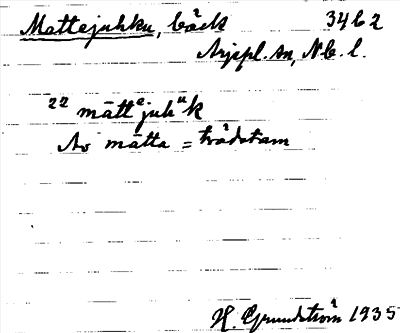 Mattejuhku, bäck 34 b 2
Arjepl. sn, Nb. l.
22 màttᵉjuhᵘk
Av màtta = trädstam
H. Grundström 1935